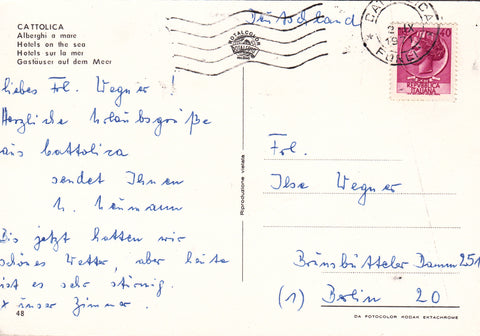 CATTOLICA
Alberghi a mare
Hotels on the sea
Hotels sur la mer
Gasthäuser auf dem Meer
liebes Frl. Wegner !
Herzliche Urlaubsgrüße
aus Cattolica
sendet Ihnen
H. Neumann
Bis jetzt hatten wir
schönes Wetter, aber heute
ist es sehr stürmig.
x unser Zimmer.
48
Riproduzione vietata
Deutschland
CATTOLICA
KOTALCOLOR
40
REPUBBLICA
ITALIANA
Frl.
Ilse Wegner
Brunsbütteler Damm 251
(1) Berlin 20
DA FOTOCOLOR KODAK EKTACHROME